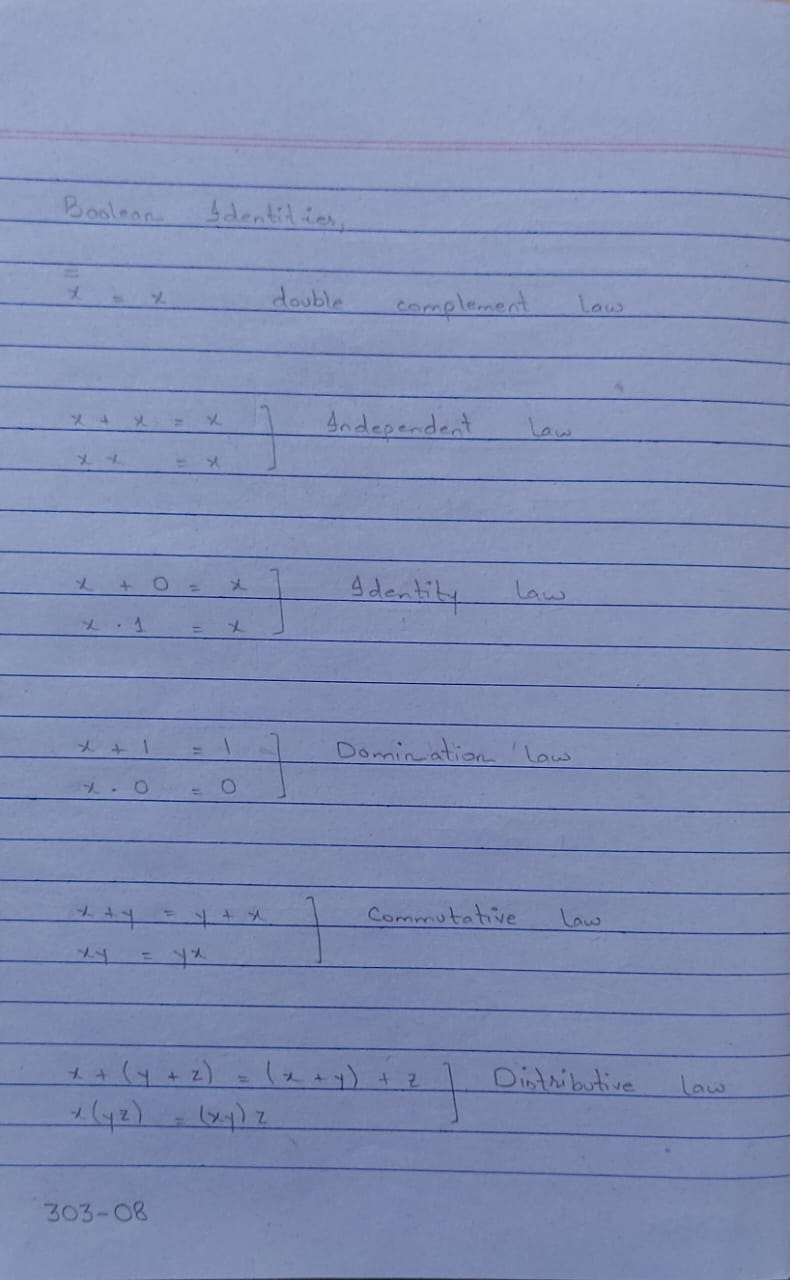 Boolean Identities,
x̿ = x double complement law
x + x = x ] Independent law
x x = x
x + 0 = x ] Identity law
x . 1 = x
x + 1 = 1 ] Domination law
x . 0 = 0
x + y = y + x ] Commutative law
xy = yx
x + (y + z) = (x + y) + z ] Distributive law
x(yz) = (xy) z
303-08